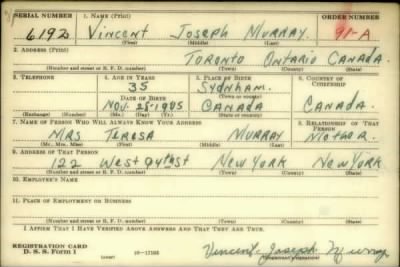 SERIAL NUMBER 1. NAME (Print) ORDER NUMBER
6192 Vincent Joseph Murray. 91-A
(First) (Middle) (Last)
2. ADDRESS (Print)
Toronto Ontario Canada.
(Number and street or R. F. D. number) (Town) (County) (State)
3. TELEPHONE 4. AGE IN YEARS 5. PLACE OF BIRTH 6. COUNTRY OF CITIZENSHIP
35 Sydnham.
DATE OF BIRTH (Town or county)
Nov. 28-1905 Canada Canada.
(Exchange) (Number) (Mo.) (Day) (Yr.) (State or country)
7. NAME OF PERSON WHO WILL ALWAYS KNOW YOUR ADDRESS 8. RELATIONSHIP OF THAT PERSON
Mrs Teresa Murray Mother.
(Mr., Mrs., Miss) (First) (Middle) (Last)
9. ADDRESS OF THAT PERSON
122 West 94th St New York New York
(Number and street or R. F. D. number) (Town) (County) (State)
10. EMPLOYER'S NAME
11. PLACE OF EMPLOYMENT OR BUSINESS
(Number and street or R. F. D. number) (Town) (County) (State)
I AFFIRM THAT I HAVE VERIFIED ABOVE ANSWERS AND THAT THEY ARE TRUE.
REGISTRATION CARD
D. S. S. Form 1 16-17105 Vincent Joseph Murray